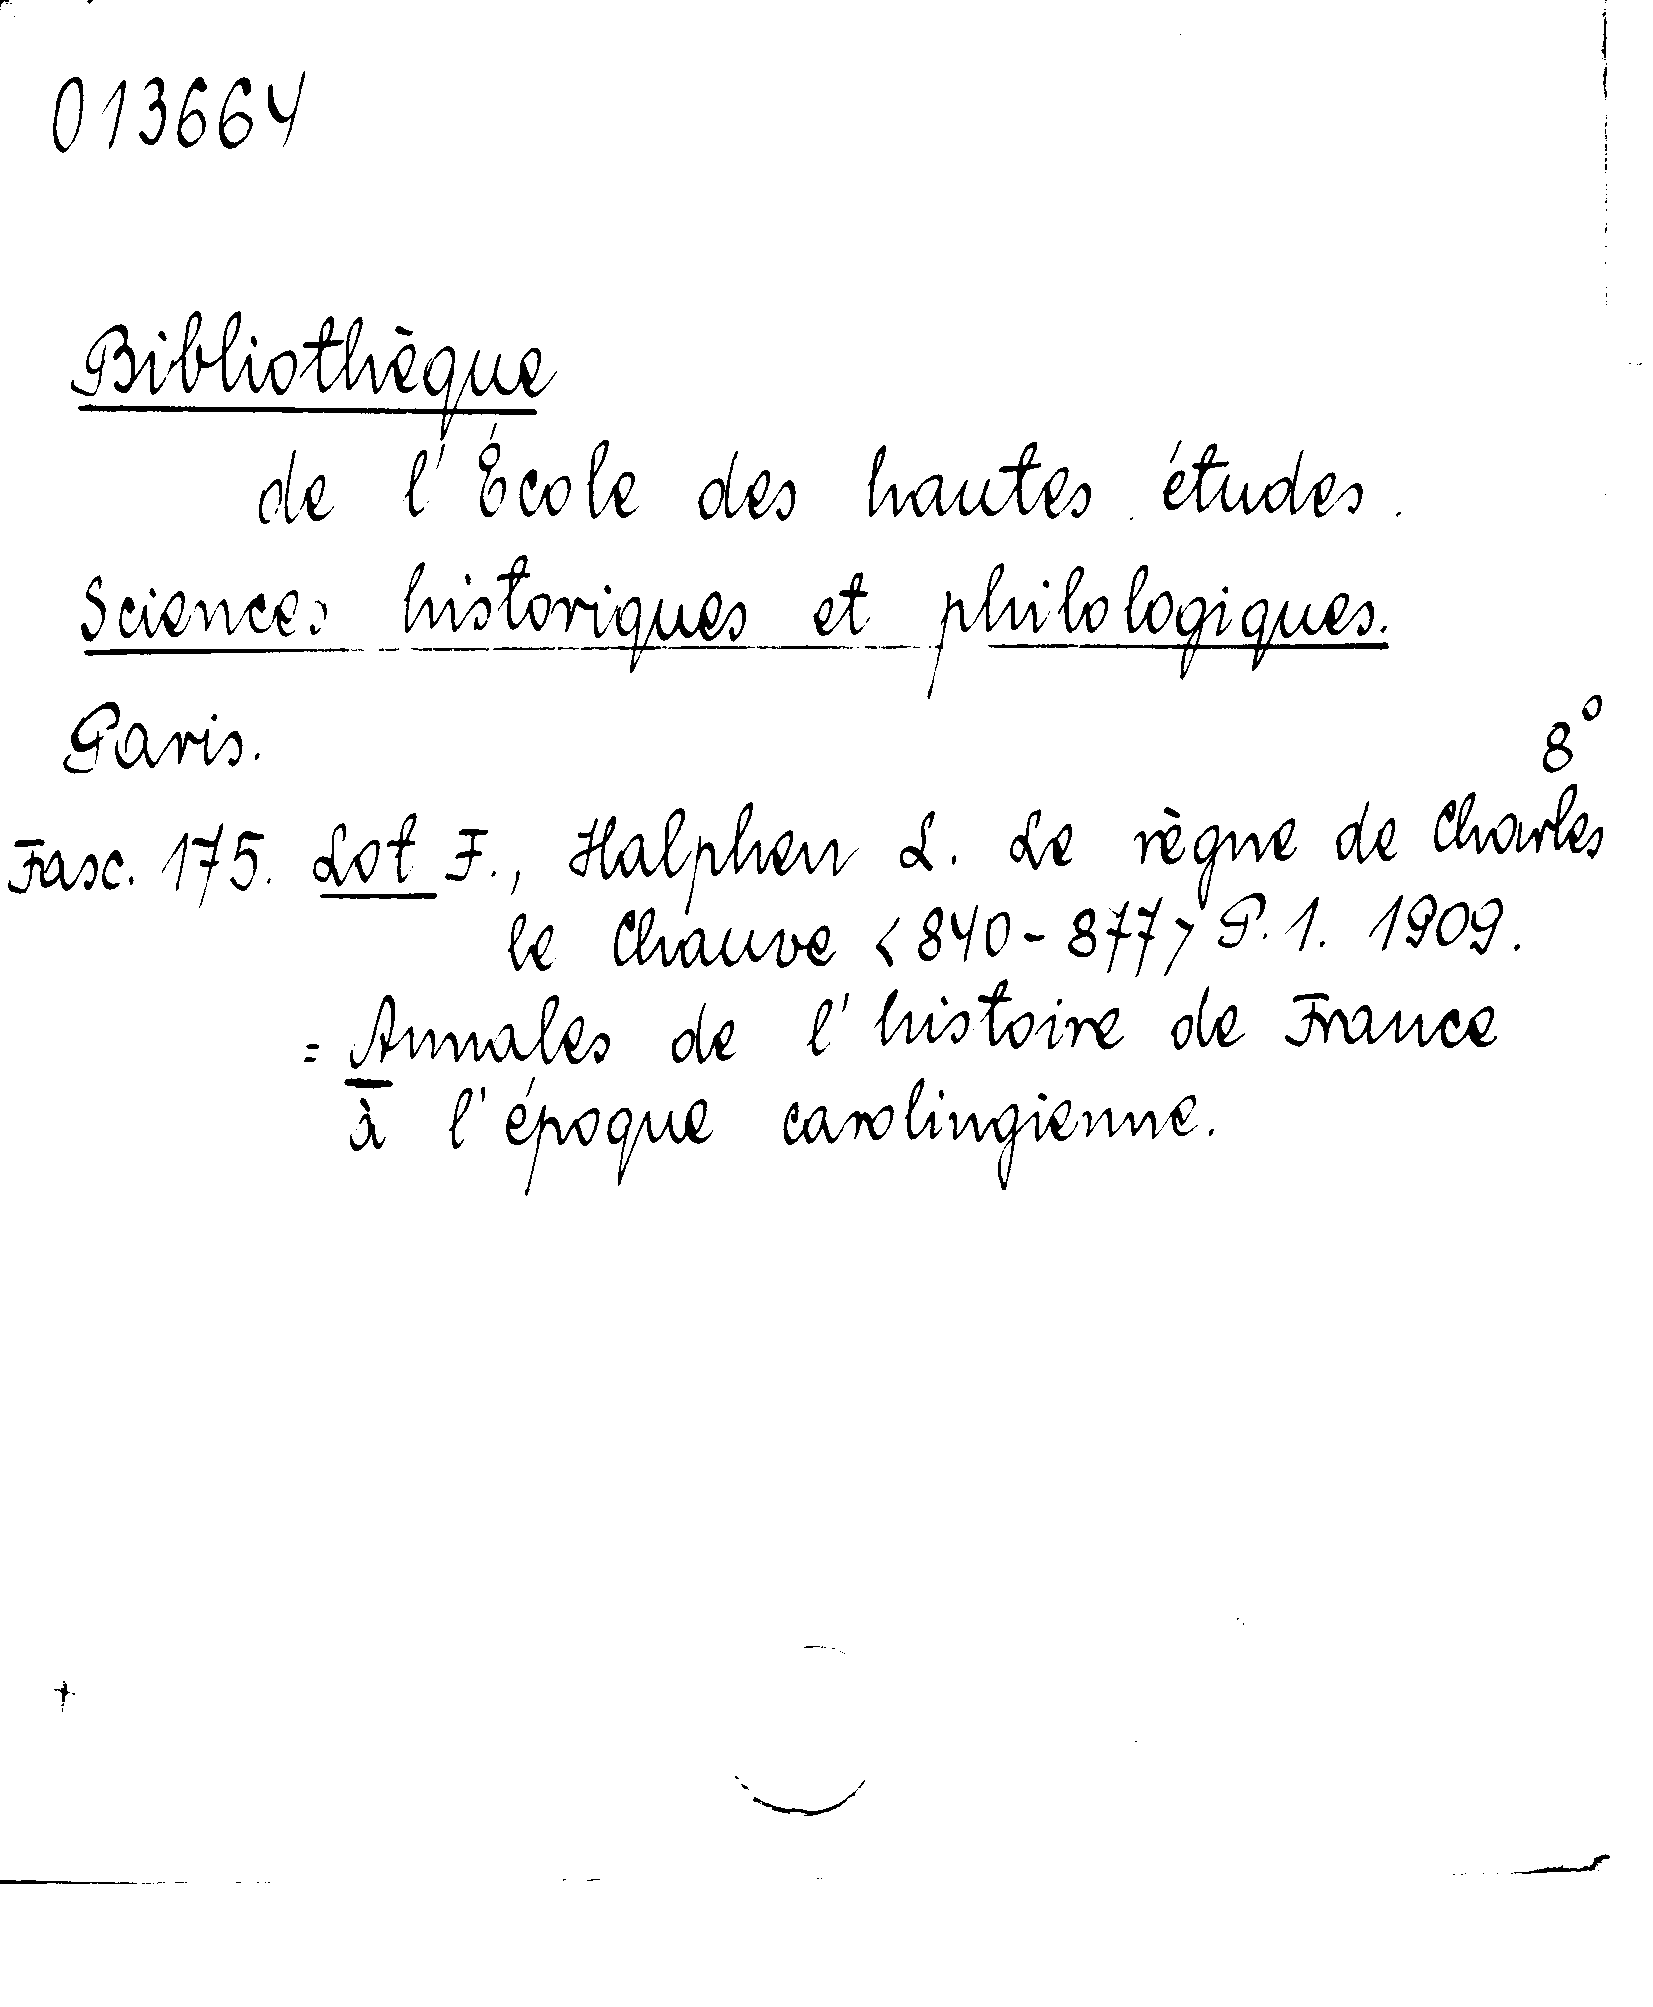 013664
Bibliothèque
de l'École des hautes études.
Sciences historiques et philologiques.
Paris. 8°
Fasc. 175. Lot F., Halphen L. Le règne de Charles
le Chauve <840-877> P. 1. 1909.
= Annales de l'histoire de France
à l'époque carolingienne.